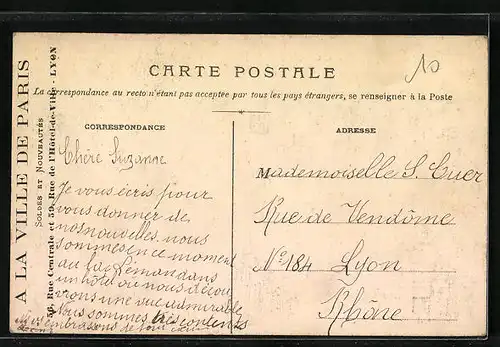 A LA VILLE DE PARIS
SOLDES ET NOUVEAUTÉS
56, Rue Centrale et 59, Rue de l'Hôtel-de-Ville - LYON
10
CARTE POSTALE
La correspondance au recto n'étant pas acceptée par tous les pays étrangers, se renseigner à la Poste
CORRESPONDANCE
Chère Suzanne
Je vous écris pour
vous donner de
nos nouvelles, nous
sommes en ce moment
au lac Léman dans
un hôtel où nous décou
vrons une vue admirable
Nous sommes très contents
embrassons de tout
ADRESSE
Mademoiselle S. Cuer
Rue de Vendôme
No 184 Lyon
Rhône